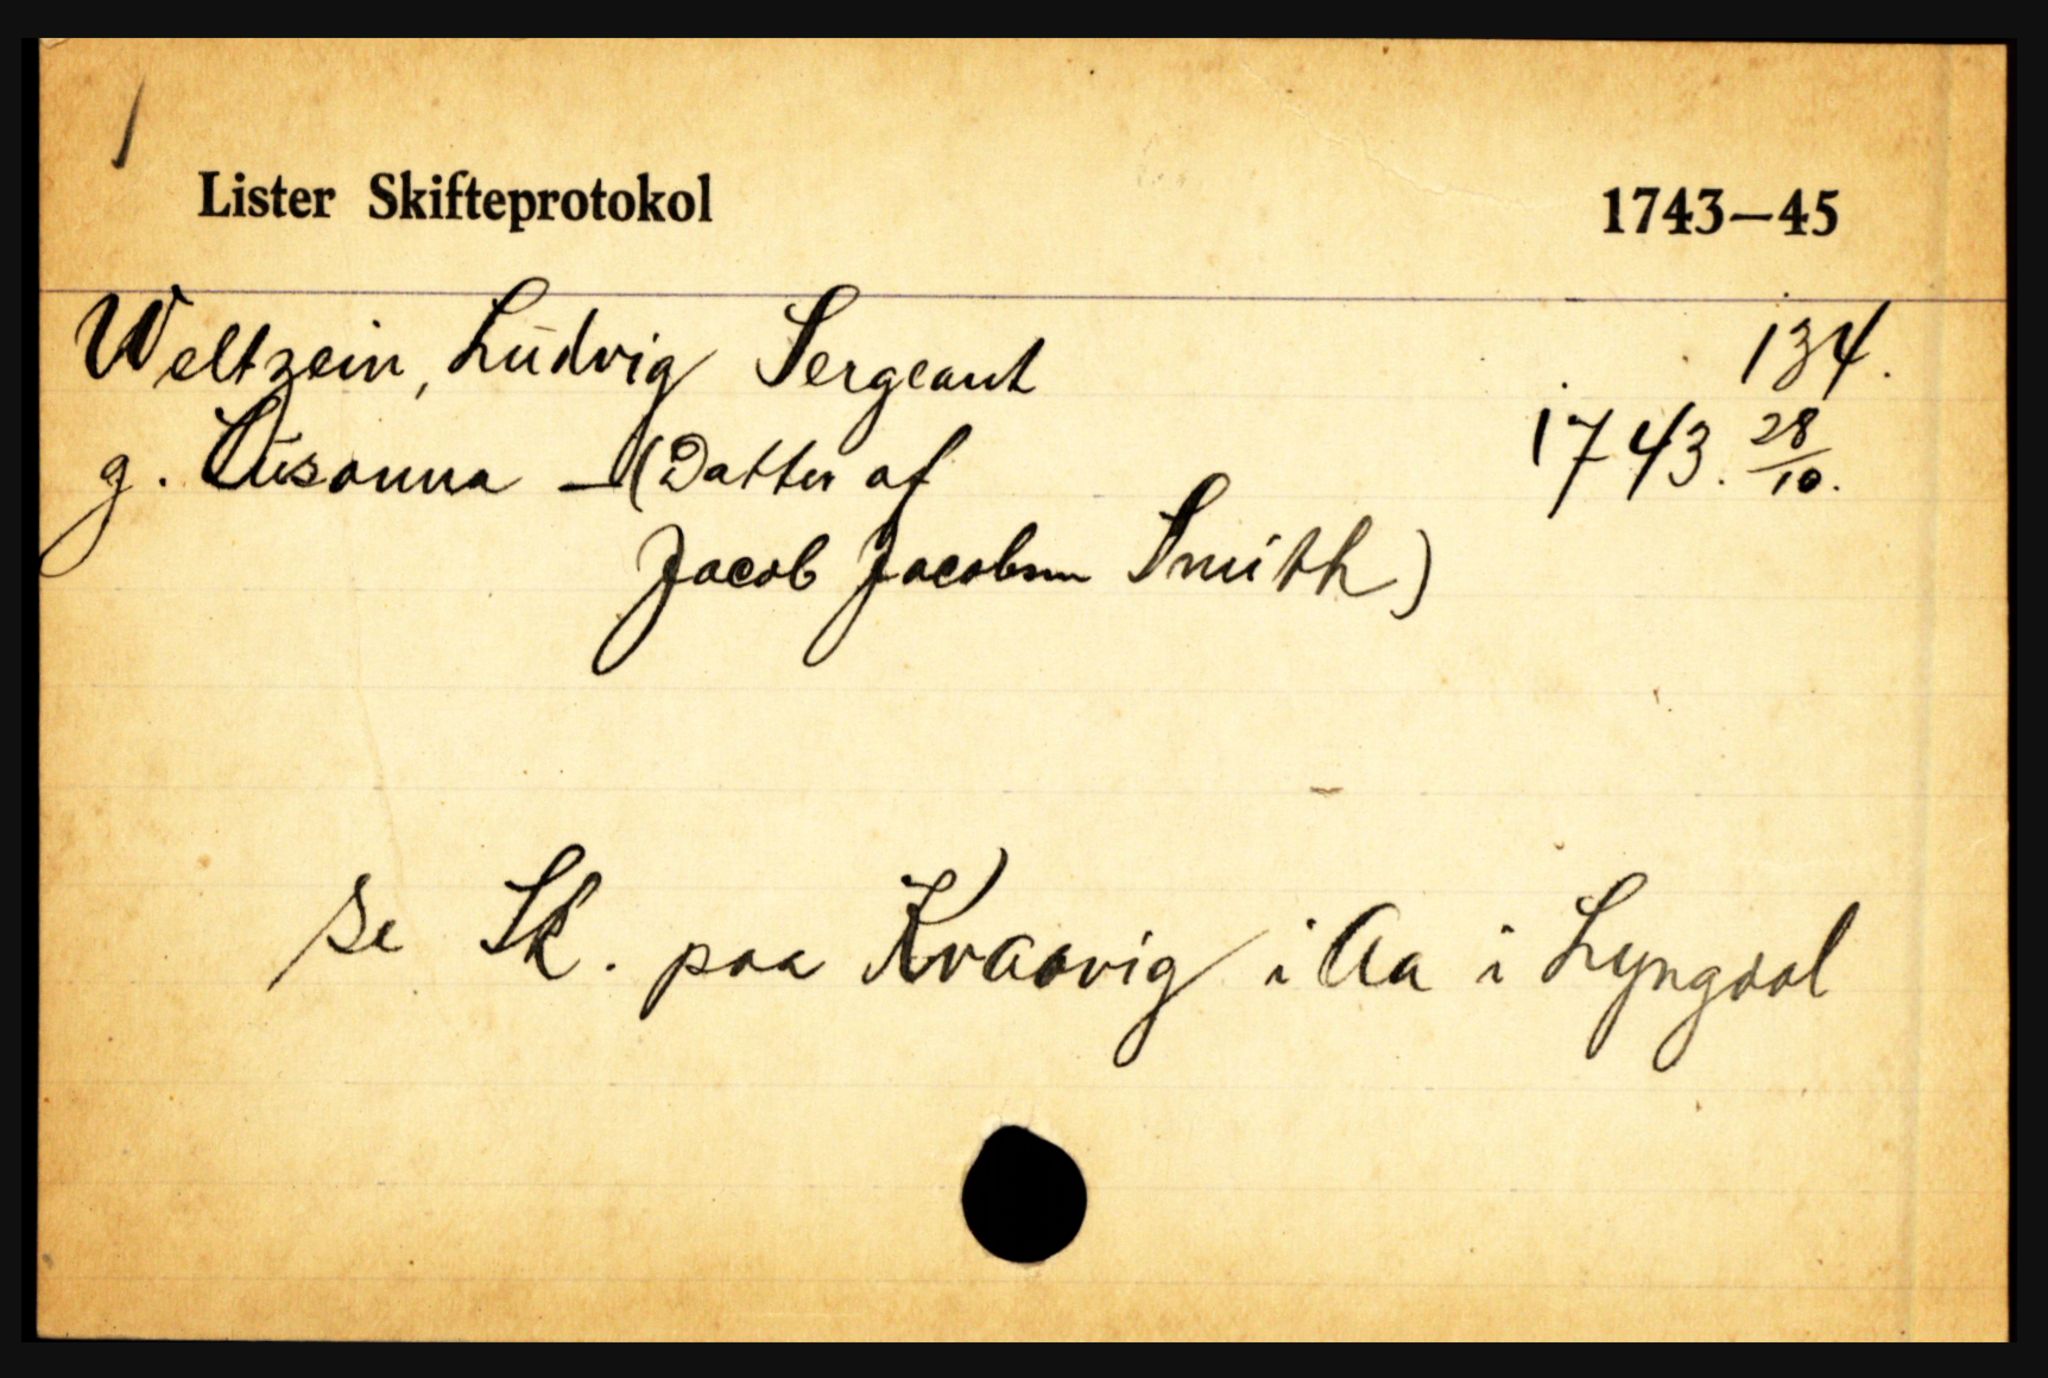 Lister Skifteprotokol 1743—45
Weltzein, Ludvig Sergeant 134.
g. Susanna — (Datter af 1743. 28/10.
Jacob Jacobsen Smith)
se Sk. paa Kraavig i Aa i Lyngdal